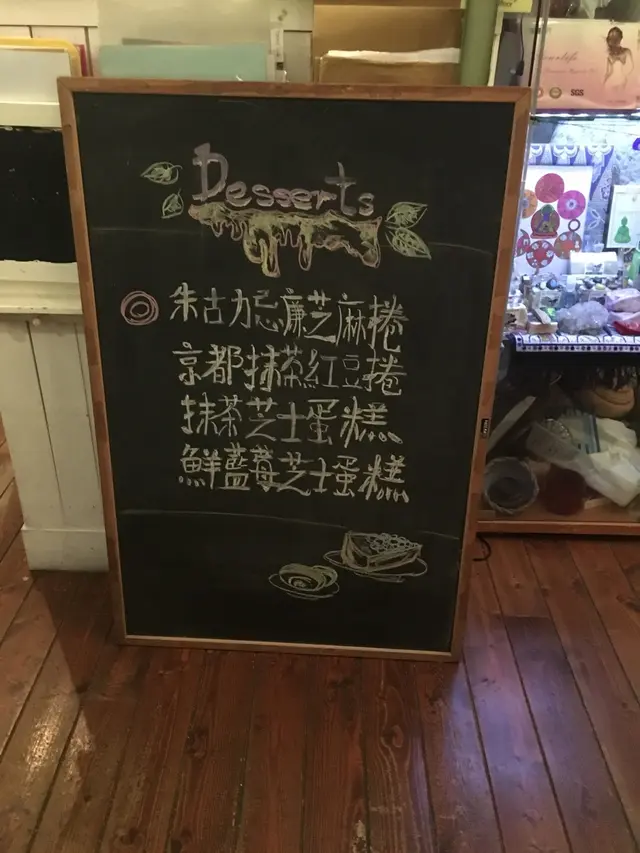 Desserts
朱古力忌廉芝麻捲
京都抹茶紅豆捲
抹茶芝士蛋糕
鮮藍莓芝士蛋糕
SGS